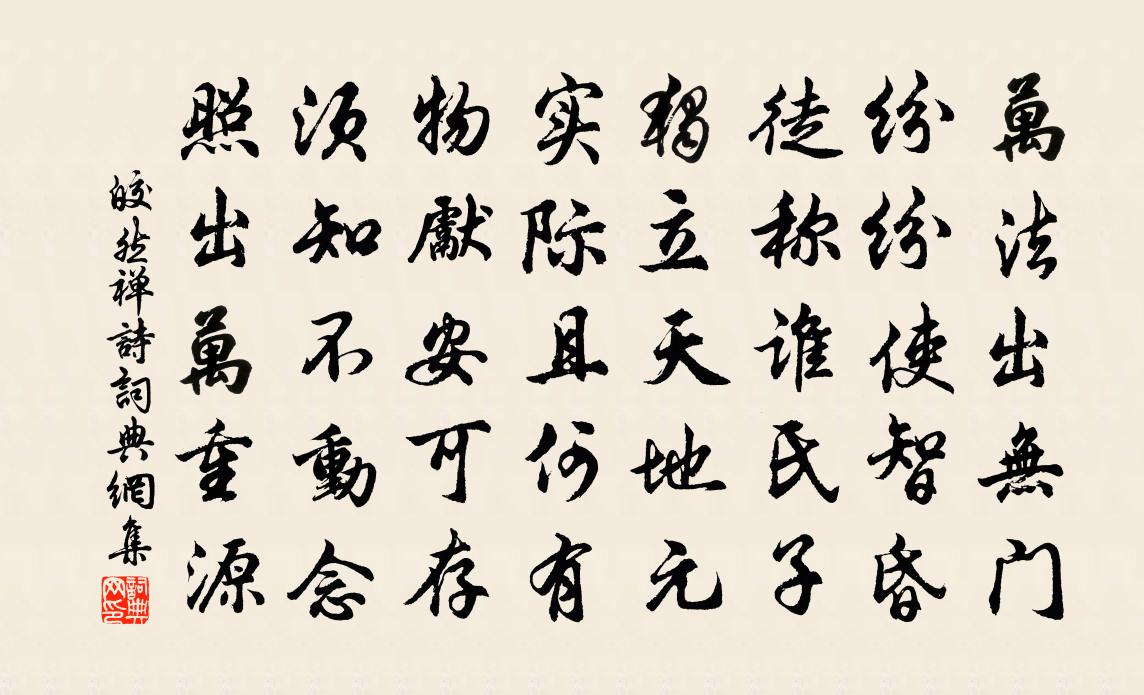 萬法出無门
纷纷使智昏
徒称谁氏子
独立天地元
实际且何有
物獻安可存
须知不動念
照出萬重源
皎然禅詩詞典網集
詞典网印